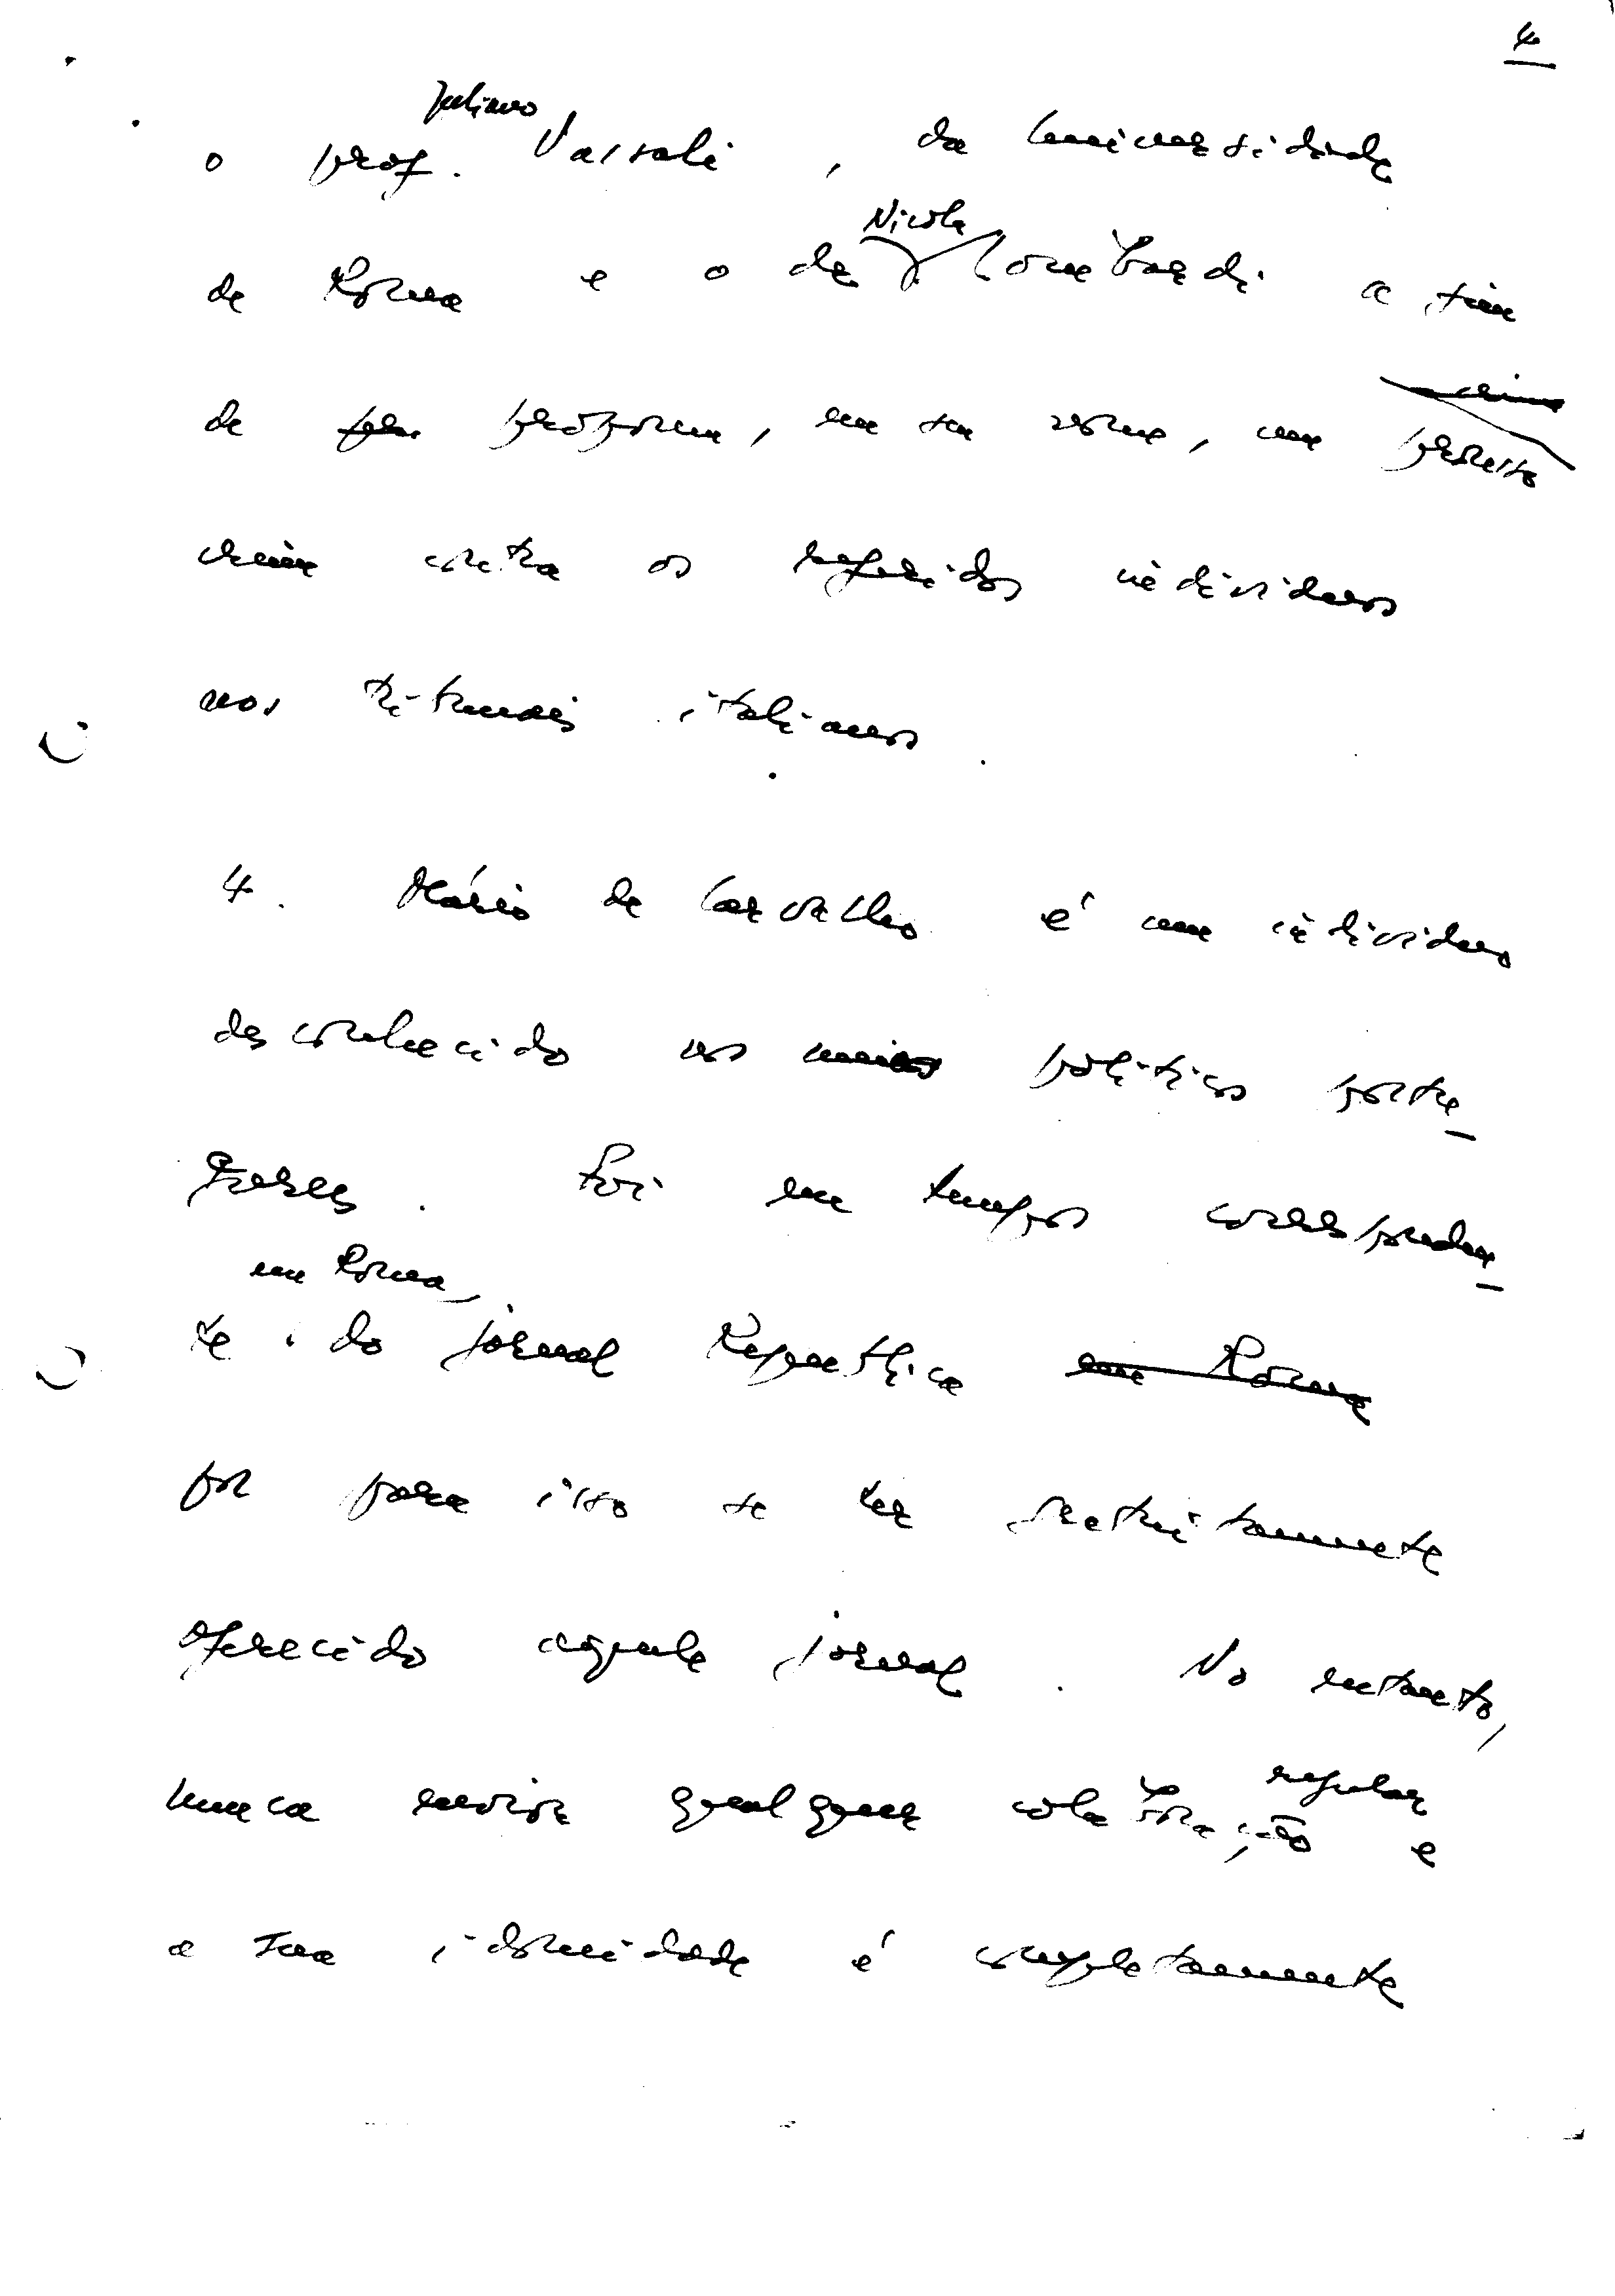 4
Juliano
o prof. Vassali, da Universidade
Nicola
de Roma e o dr. Lombardi a fim
de propor, em seu nome, um processo
crime contra os referidos indivíduos
nos tribunais italianos.
4. Mário de Carvalho é um indivíduo
desconhecido nos meios políticos portu-
gueses. Foi em tempos corresponden-
em Roma,
te do jornal República em Roma
por para isso se ter gratuitamente
oferecido aquele jornal. No entanto,
regular
nunca enviou qualquer colaboração e
a sua idoneidade é completamente